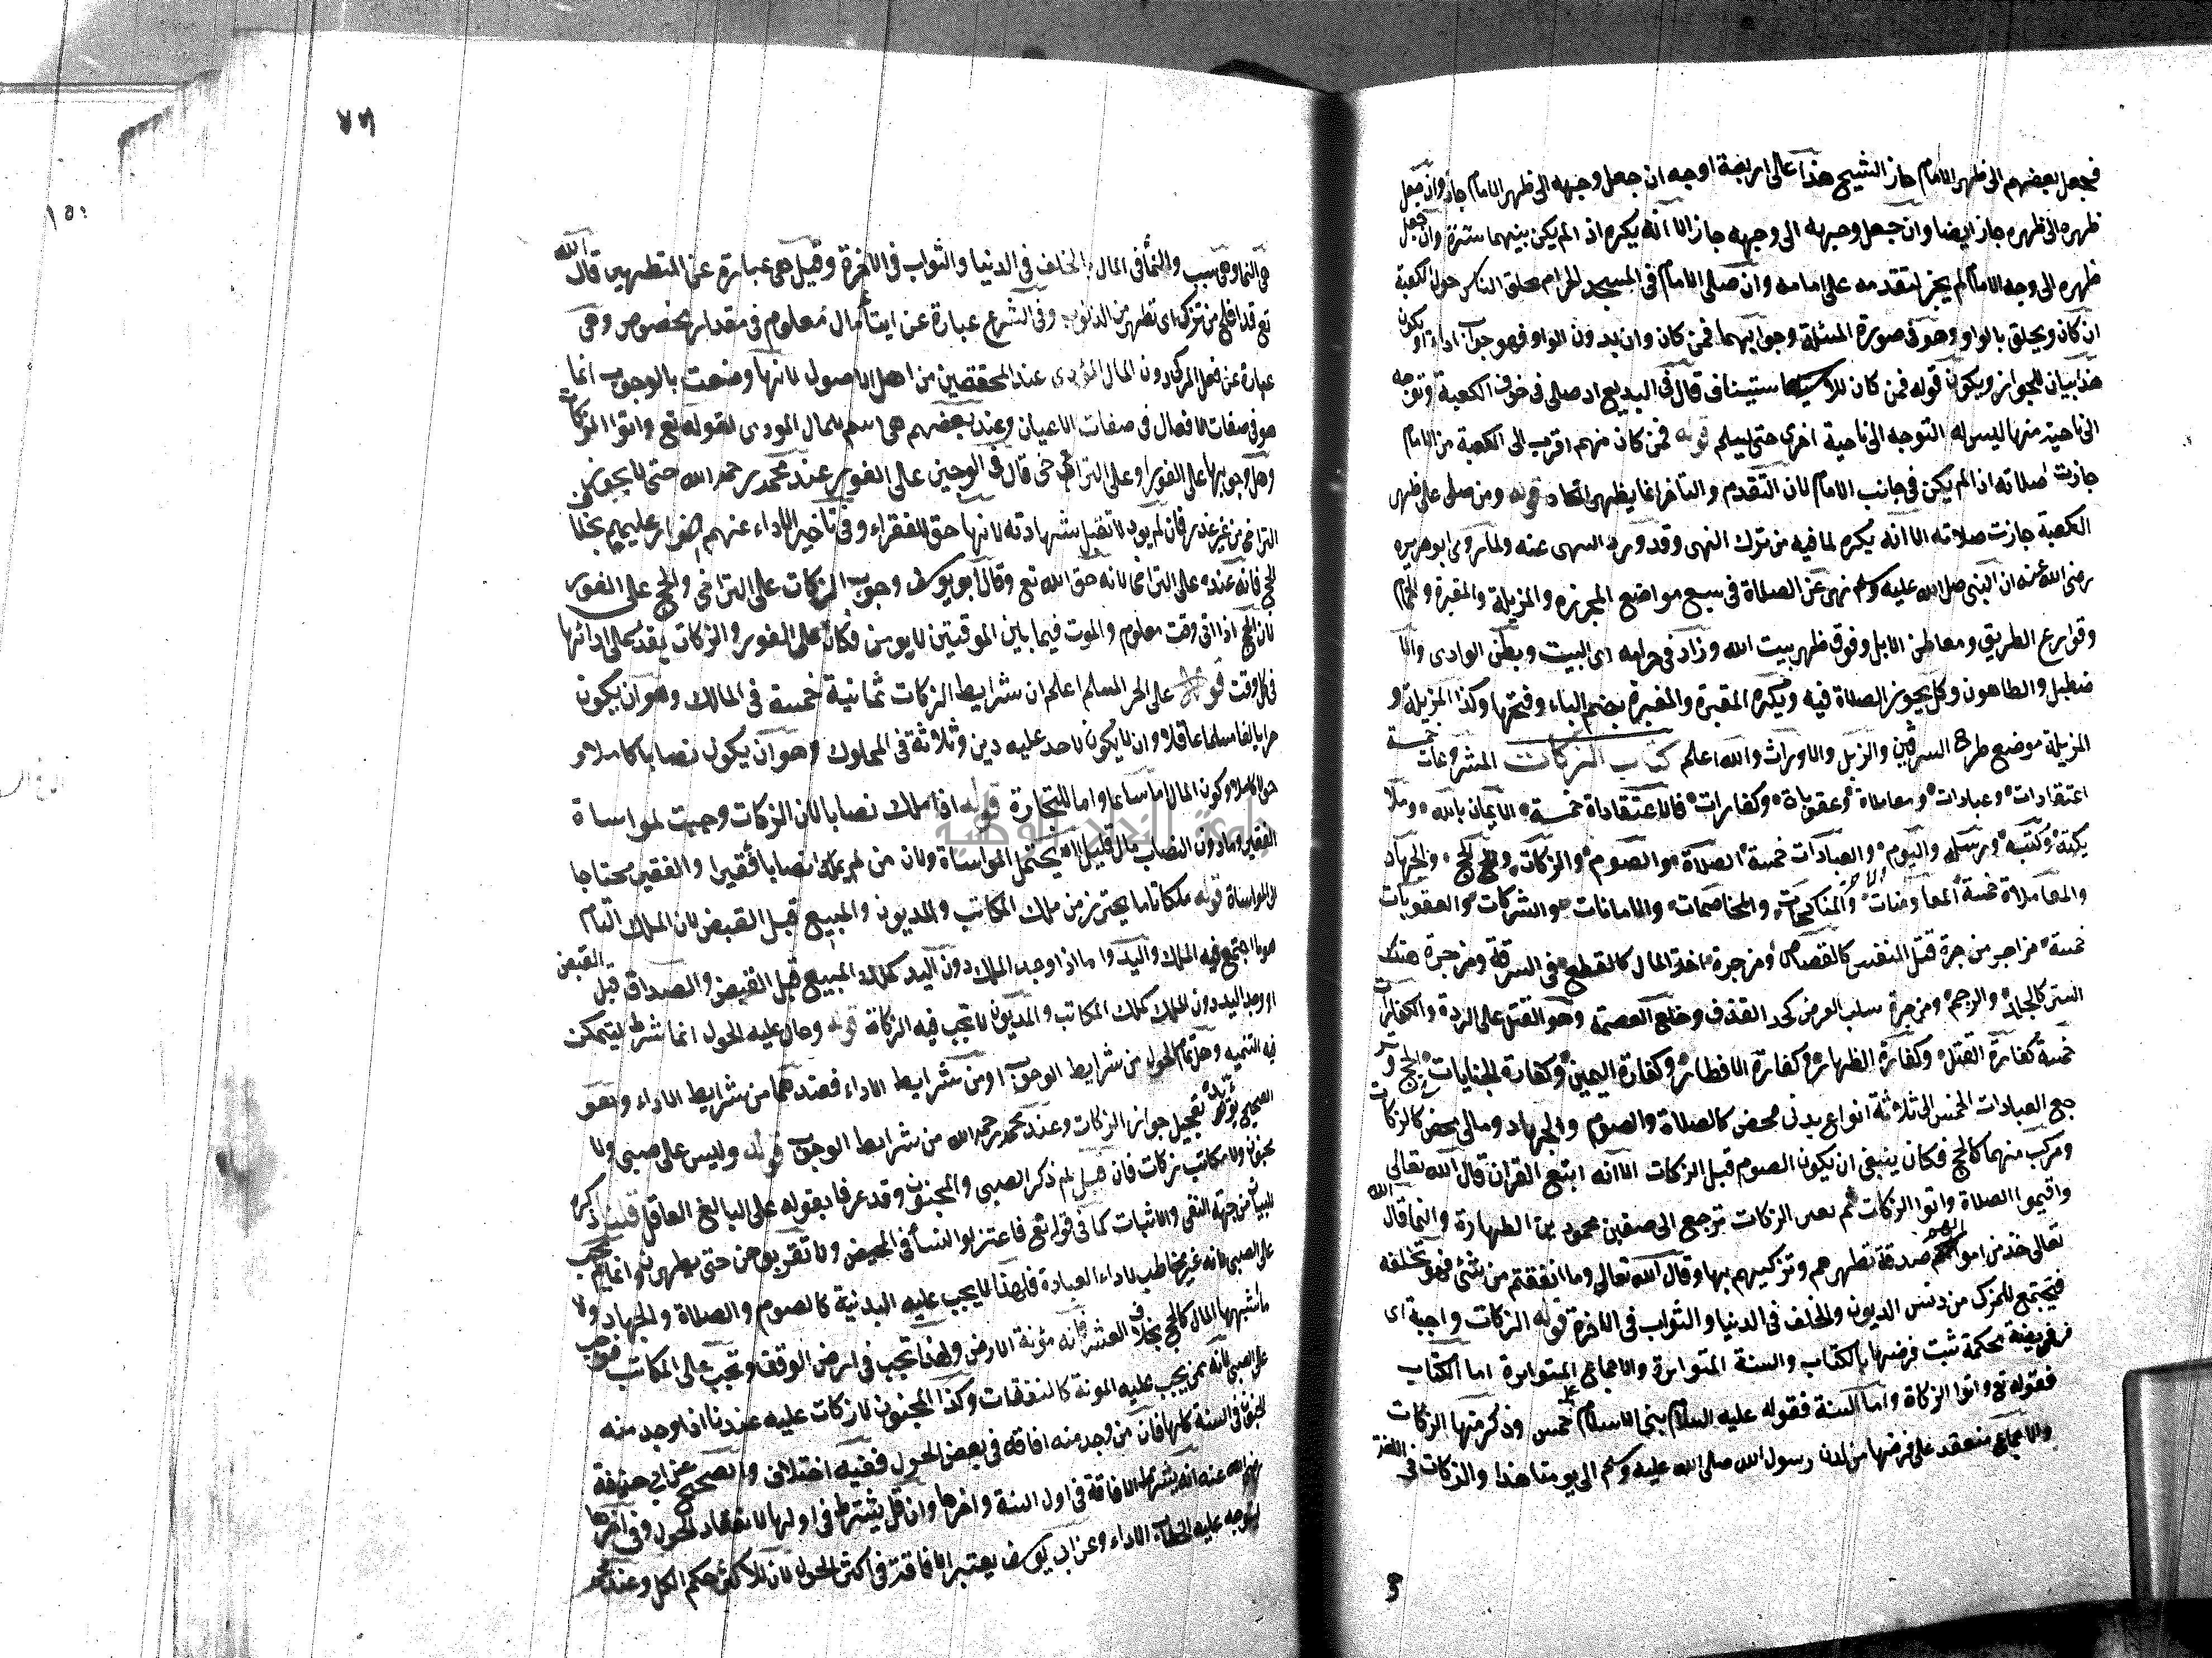 فجعل بعضهم الى ظهر الامام جاز الشيخ هذا على اربعة اوجه ان جعل وجهه الى ظهر الامام جاز وان جعل
ظهره الى ظهره جاز ايضا وان جعل وجهه الى وجهه جاز الا انه يكره اذ الم يكن بينهما سترة وان جعل
ظهره الى وجه الامام لم يجز لتقدمه على امامه وان صلى الامام في المسجد الحرام تحلق الناس حول الكعبة
ان كان ويحلق بالواو وهو في صورة المسئلة وجوابهما فمن كان وان بدون الواو فهو جواب اذا ويكون
هذا بيان للجواز ويكون قوله فمن كان للاستيناف قال في البديع اذ صلى في خوف الكعبة وتوجه
الى ناحية منها ليس له التوجه الى ناحية اخرى حتى يسلم قوله فمن كان منهم اقرب الى الكعبة من الامام
جازت صلاته اذ الم يكن في جانب الامام لان التقدم والتاخر انما يظهر اتحاد قوله ومن صلى على ظهر
الكعبة جازت صلاته الا انه يكره لما فيه من ترك النهى وقد ورد النهى عنه ولما روى ابو هريره
رضى الله عنه ان النبى صلى الله عليه وسلم نهى عن الصلاة في سبع مواضع المجزره والمزبلة والمقبرة والحمام
وقوارع الطريق ومعاطن الابل وفوق ظهر بيت الله وزاد في حرامه اى البيت وبطن الوادى والا
صطبل والطاهون وكل يجوز الصلاة فيه ويكره المقبرة والمقبرة بضم الباء وفتحها وكذا المزبلة و
المزبلة موضع طرح السرقين والزبل والاوراث والله اعلم كتاب الزكات المشروعات خمسة
اعتقادات وعبادات ومعاملاة وعقوبات وكفارات فالاعتقاداة خمسة الايمان بالله وملا
يكته وكتبه ورسله واليوم الاخر والعبادات خمسة الصلاة والصوم والزكات والحج والجهاد
والمعاملاة خمسة المعاوضات والمناكحات والمخاصمات والامانات والشركات والعقوبات
خمسة مزاجر مزجرة قتل النفس كالقصاص ومزجرة اخذ المال كالقطع في السرقة ومزجرة هتك
الستر كالجلد والرجم ومزجرة سلب العرض كحد القذف وخلع العصمة وهو القتل على الردة والكفارات
خمسة كفارة القتل وكفارة الظهار وكفارة الافطار وكفارة اليمين وكفارة الجنايات الحج و
جمع العبادات الخمس الى ثلاثة انواع بدنى محض كالصلاة والصوم والجهاد ومالى محض كالزكات
ومركب منهما كالحج فكان ينبغى ان يكون الصوم قبل الزكات الا انه اتبع القران قال الله تعالى
واقيموا الصلاة واتوا الزكات ثم الزكات ترجع الى صفين محمود بين الطهارة والنما قال الله
تعالى خذ من اموالهم صدقة تطهرهم وتزكيهم بها وقال الله تعالى وما انفقتم من شئ فهو يخلفه
فيجتمع للمزكى من دنس الديون والخلف في الدنيا والثواب في الاخرة قوله الزكات واجبة اى
فريضة محكمة ثبت فرضها بالكتاب والسنة المتواترة والاجماع المتواترة اما الكتاب
فقوله تع واتوا الزكاة واما السنة فقوله عليه السلام بنى الاسلام على خمس وذكر منها الزكات
والاجماع منعقد على فرضها من لدن رسول الله صلى الله عليه وسلم الى يومنا هذا والزكات في اللغة
٧٦
هى النما وهى سبب والنما في المال بالخلف في الدنيا والثواب في الاخرة وقيل هى عبارة عن المتطهرين قال الله
تع قد افلح من تزكى اى تطهر من الذنوب وفي الشرع عبارة عن ايتا مال معلوم في مقدار مخصوص وهى
عبارة عن فعل المزكى دون المال المؤدى عند المحققين من اهل الاصول لانها وصفت بالوجوب انما
هو في صفات الافعال في صفات الاعيان وعند بعضهم هى اسم للمال المودى لقوله تع واتوا الزكات
وهل وجوبها على الفور او على التراخى قال في الوجيز على الفور عند محمد رحمه الله حتى لا يجوز
التراخى من غير عذر فان لم يود لا تقبل شهادته لانها حق الفقراء وفي تاخير الاداء عنهم اضرار عليهم بخلاف
الحج فانه عنده على التراخى لانه حق الله تع وقال ابو يوسف وجوب الزكات على التراخى والحج على الفور
لان الحج اذا اتى وقت معلوم والموت فيما بين الموقتين لا يومن فكان على الفور والزكات يقدر على ادائها
في كل وقت قوله على الحر المسلم اعلم ان شرايط الزكات ثمانية خمسة في المالك وهو ان يكون
حرا بالغا مسلما عاقلا وان لا يكون لاحد عليه دين وثلاثة في المملوك وهو ان يكون نصابا كاملا و
حولا كاملا وكون المال اما سائما واما للتجارة قوله اذا ملك نصابا لان الزكات وجبت لمواساة
الفقير وما دون النصاب مال قليل لا يحتمل المواساة ولان من لم يملك نصابا فقيرا والفقير محتاجا
الى المواساة قوله ملكا تاما يحترز من ملك المكاتب والمديون والمبيع قبل القبض لان الملك التام
هو ما اجتمع فيه الملك واليد واما اذا وجد الملك دون اليد كملك المبيع قبل القبض والصداق قبل القبض
او وجد اليد دون الملك كملك المكاتب والمديون لا تجب فيه الزكاة قوله وحال عليه الحول انما شرط ليتمكن
فيه التنميه وهل تمام الحول من شرايط الوجوب او من شرايط الاداء فعندهما من شرايط الاداء وهو
الصحيح يؤيده تعجيل جواز الزكات وعند محمد رحمه الله من شرايط الوجوب قوله وليس على صبى ولا
مجنون ولا مكاتب زكات فان قيل لم ذكر الصبى والمجنون وقد عرفا بقوله على البالغ العاقل قلنا ذكره
للبيان من جهة النفى والاثبات كما في قوله تع فاعتزلوا النسأ في المحيض ولا تقربوهن حتى يطهرن وانما لم تجب
على الصبى لانه غير مخاطب لاداء العبادة فلهذا لا يجب عليه البدنية كالصوم والصلاة والجهاد ولا
ما شبهها المال كالحج بخلاف العشر فانه مؤنة الارض ولهذا تجب في ارض الوقف وتجب على المكاتب فوجب
على الصبى لانه ممن يجب عليه المونة كالنفقات وكذا المجنون لا زكات عليه عندنا اذا وجد منه
الجنون في السنة كلها فان وجد منه افاقه في بعض الحول ففيه اختلاف والصحيح عن ابى حنيفة
رضى الله عنه انه يشترط الافاقة في اول السنة واخرها وان قل يشترط في اولها لانعقاد الحول وفي اخرها
ليتوجه عليه الخطاب الاداء وعن ابى يوسف يعتبر الافاقة في اكثر الحول لان للاكثر حكم الكل وعند محمد